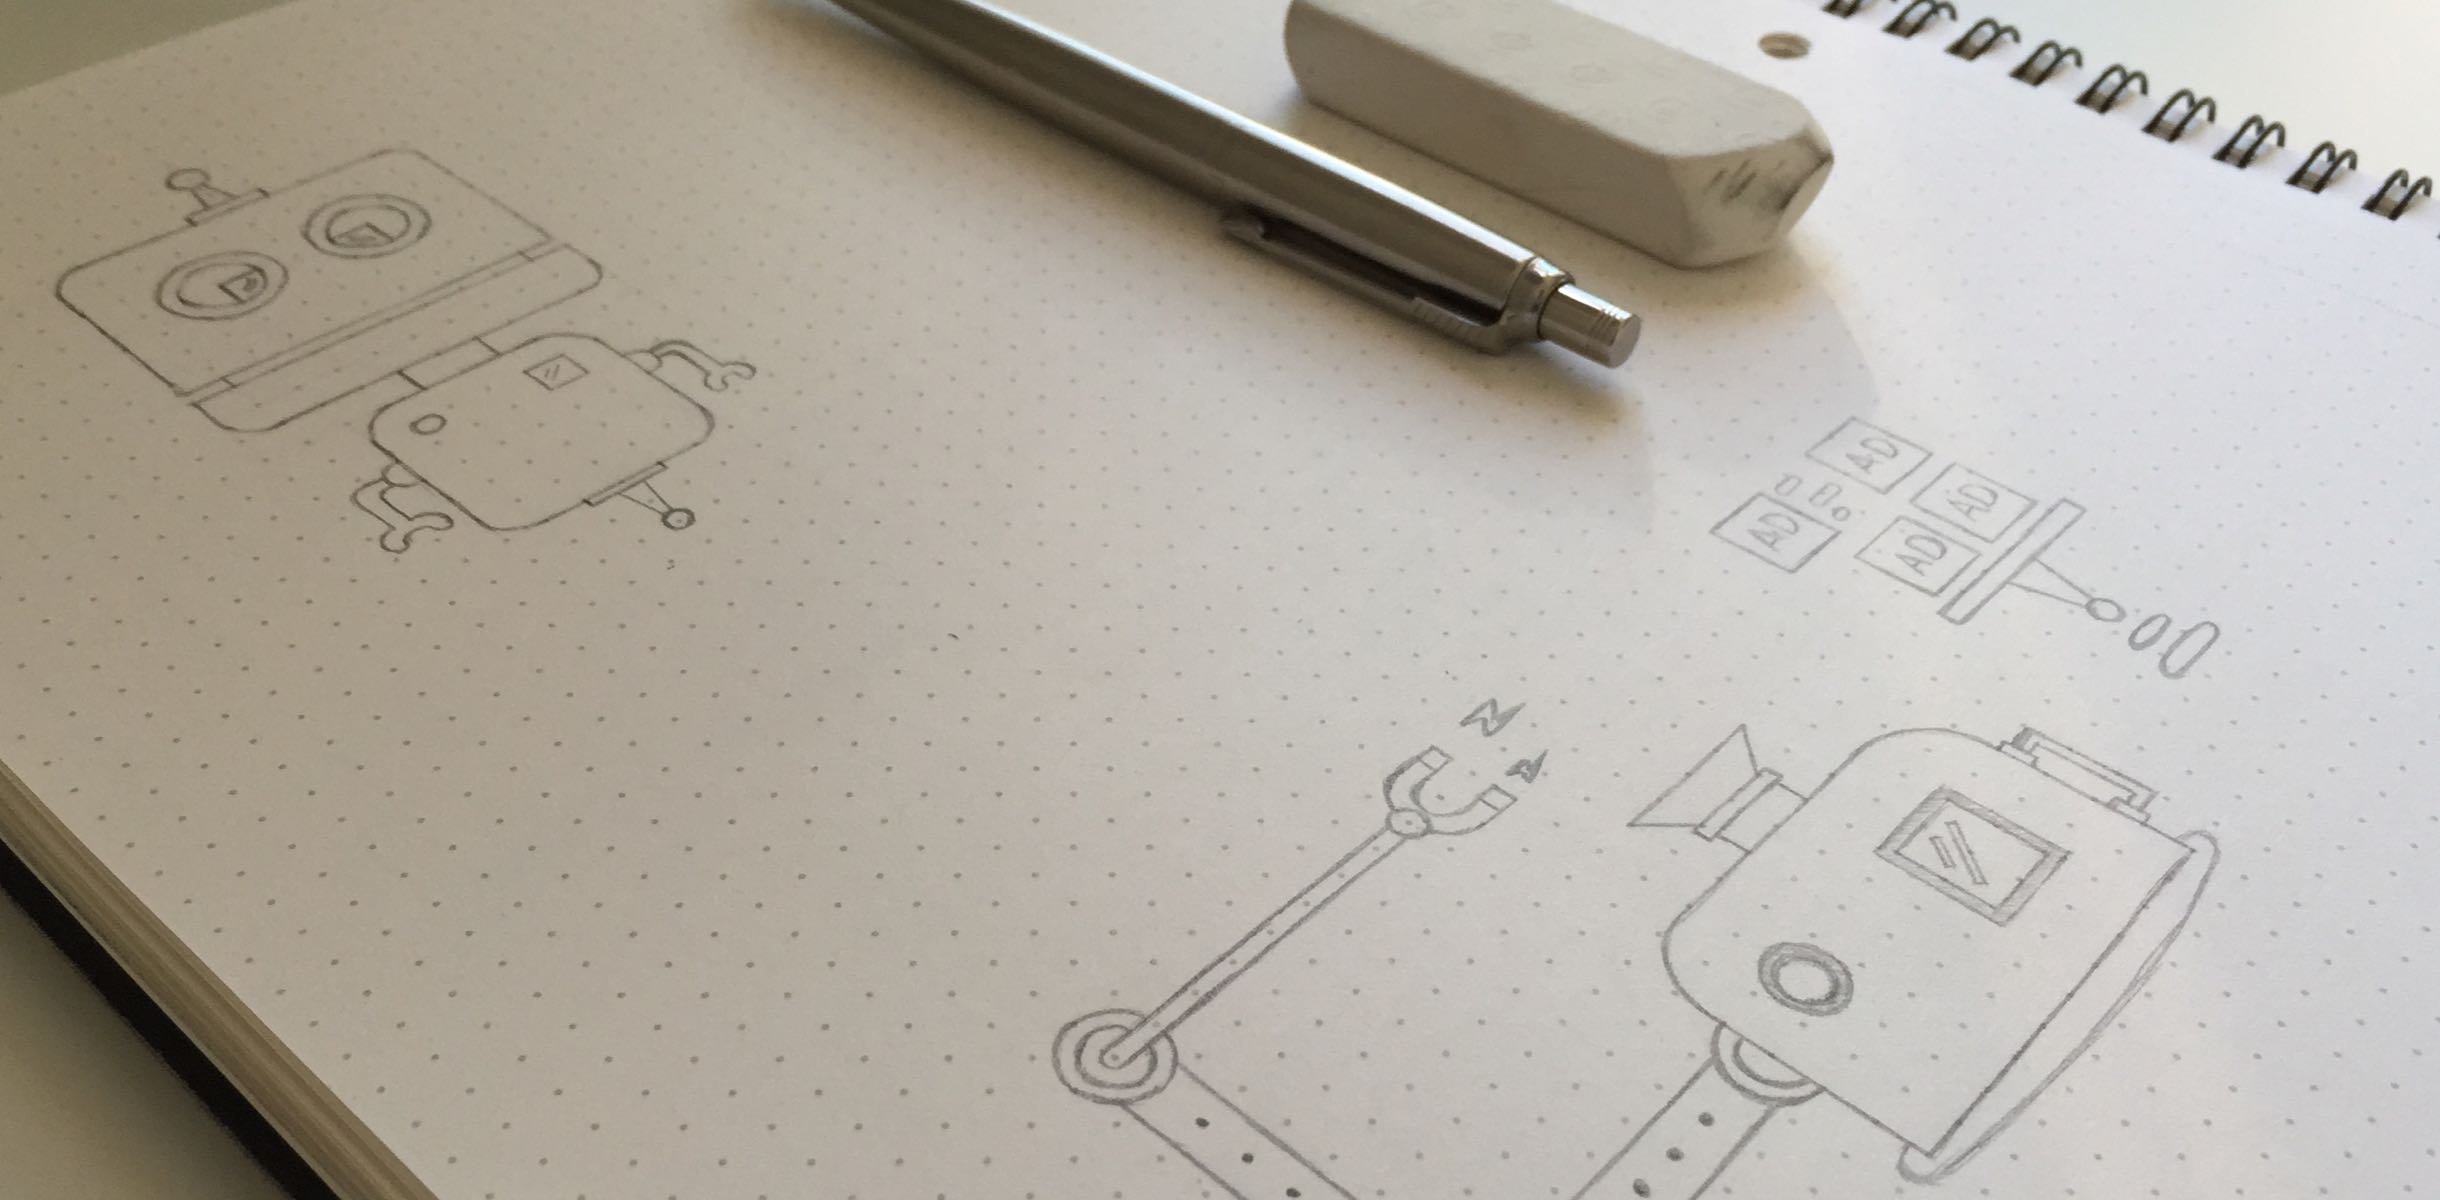 AD
AD
AD
AD